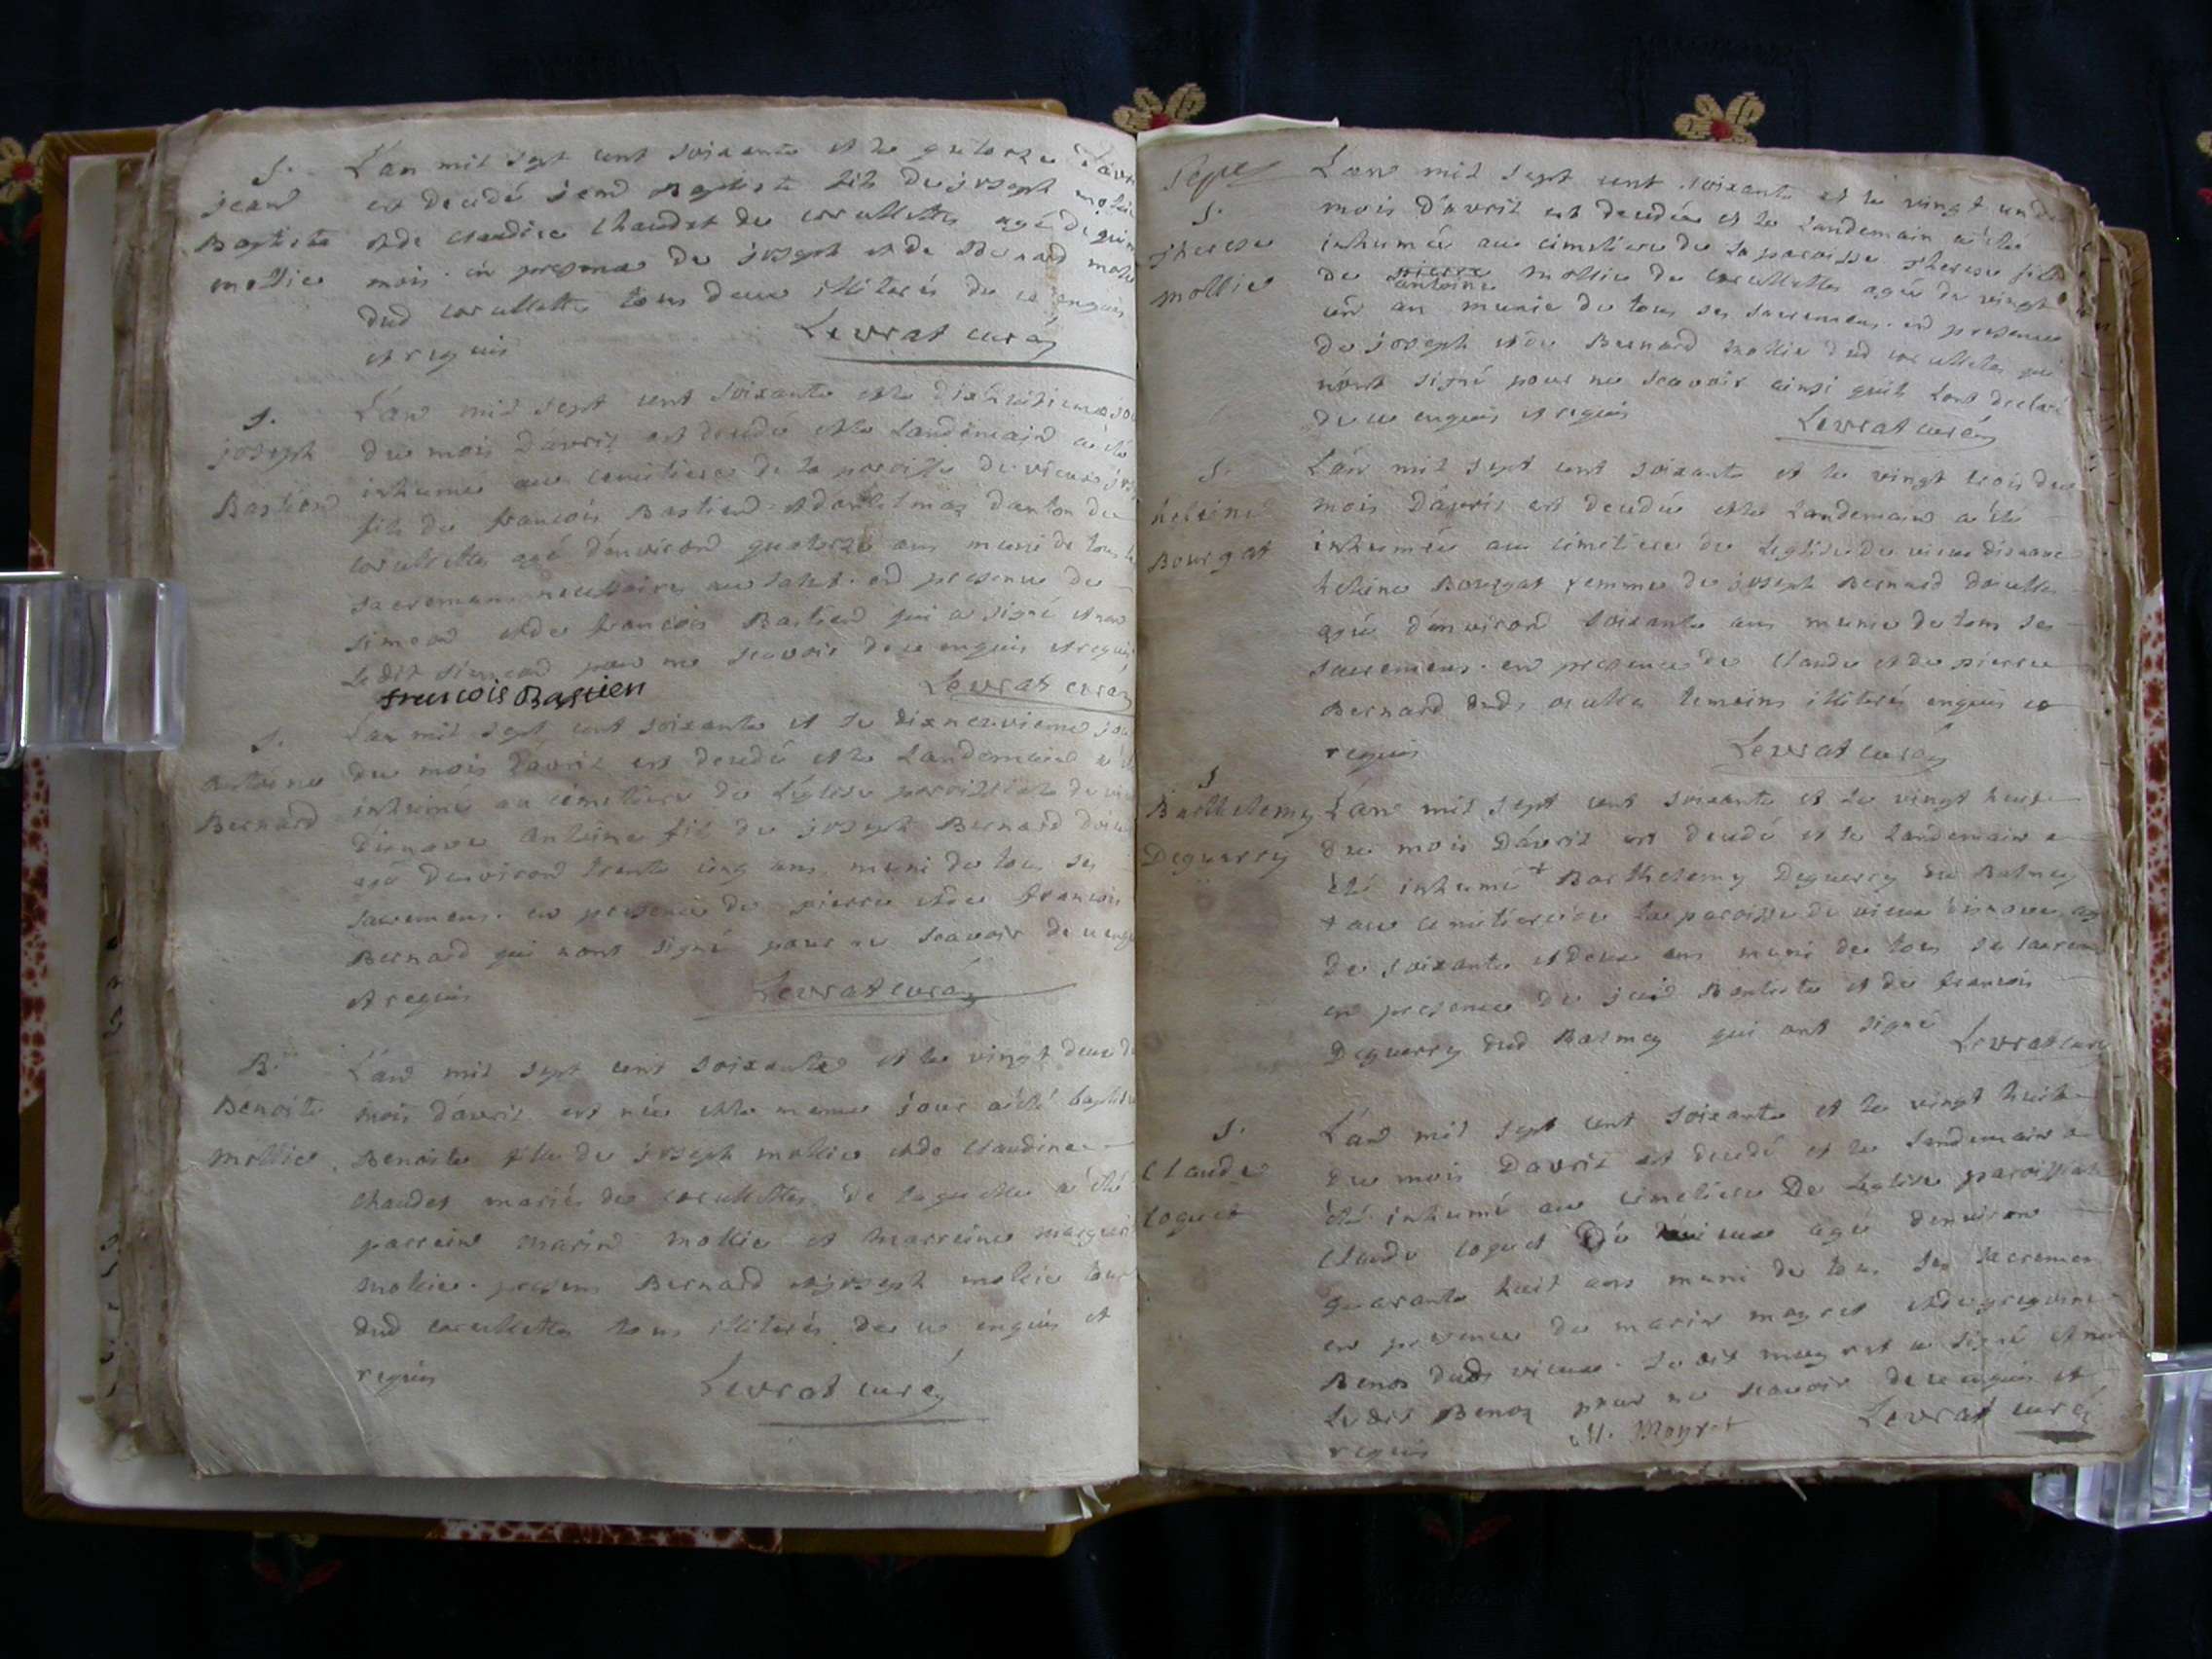 S.
jean
Baptiste
mollie
L'an mil sept cent soixante et le quatorze d'avri
est decedé jean Baptiste fils de joseph mollie
et de claudine Chaudet de corcellette agé de
mois. en presence de joseph et de Bernard molie
dud corcellette tous deux illiterés de ce enquis
et requis
Levrat curé
S.
joseph
Bastiend
L'an mil sept cent soixante et le dixhuitieme jou
du mois d'avril est decedé et le landemain a été
inhumé au cemitiere de la paroisse de vieux jos
fils de francois Bastiend danton de
corcellette agé d'environd quatorze ans muni de tous
sacremans necessaires au salut. en presence de
simeond et de francois Bastiend qui a signé et non
ledit simeond pour ne scavoir de ce enquis et requis
francois Bastien
Levrat curé
S.
Antoine
Bernard
L'an mil sept cent soixante et le dixneuvieme jou
du mois d'avril est decedé et le landemaind a é
inhumé au cemetiere de L'église paroissiale de vi
antoine fils de joseph Bernard
agé d'environd trente cinq ans, muni de tous ses
sacremens. en presence de pierre et de francois
Bernard qui n'ont signé pour ne scavoir de ce enq
et requis
Levrat curé
B.
Benoite
mollie
L'an mil sept cent soixante et le vingt deux d
mois d'avril est née et le meme jour a été baptis
Benoite fille de joseph mollie et de claudine
Chaudet mariés de corcellette, de laquelle a été
parrein marin mollie et marreine marguer
mollie. presens Bernard et joseph mollie tous
dud corcellette tous illiterés de ce enquis et
requis
Levrat curé
Sept
S.
Therese
mollie
L'an mil sept cent soixante et le vingt un de
mois d'avril est decedée et le landemain a été
inhumée au cimetiere de la paroisse Therese fille
de pierre mollie de corcellette agée de vingt
antoine
un an munie de tous ses sacremens. en presence
de joseph et de Bernard mollie dud corcellette qui
n'ont signé pour ne scavoir ainsi qu'ils l'ont declaré
de ce enquis et requis
Levrat curé
S.
heleine
Bourgat
L'an mil sept cent soixante et le vingt trois du
mois d'avril est decedée et le landemain a été
inhumée au cimetiere de Leglise de vieux
heleine Bourgat femme de joseph Bernard
agée d'environd soixante ans munie de tous ses
sacremens. en presence de claude et de pierre
Bernard temoins illiterés enquis et
requis
Levrat curé
S
Barthelemy
Deguerry
L'an mil sept cent soixante et le vingt huit
du mois d'avril est decedé et le landemain a
été inhumé + Barthelemy Deguerry de Balmey
+ au cemitiere de la paroisse de vieux agé
de soixante et deux ans muni de tous ses sacrem
en presence de jean Baptiste et de francois
Deguerry dud Balmey qui ont signé
Levrat curé
S.
Claude
Coguet
L'an mil sept cent soixante et le vingt huit
du mois d'avril est decedé et le landemain a
été inhumé au cimetiere De Leglise paroissiale
Claude Coguet De vieux agé d'environ
quarante huit ans muni de tous ses sacremen
en presence de marin mayret et de
Benoz dud vieux. Le dit mayret a signé et non
Le dit Benoz pour ne scavoir de ce enquis et
requis
M. Mayret
Levrat curé